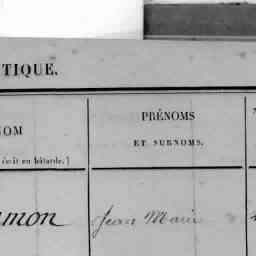 TIQUE.
OM
PRÉNOMS
ET SURNOMS.
écrit en bâtarde.)
mon
Jean Marie